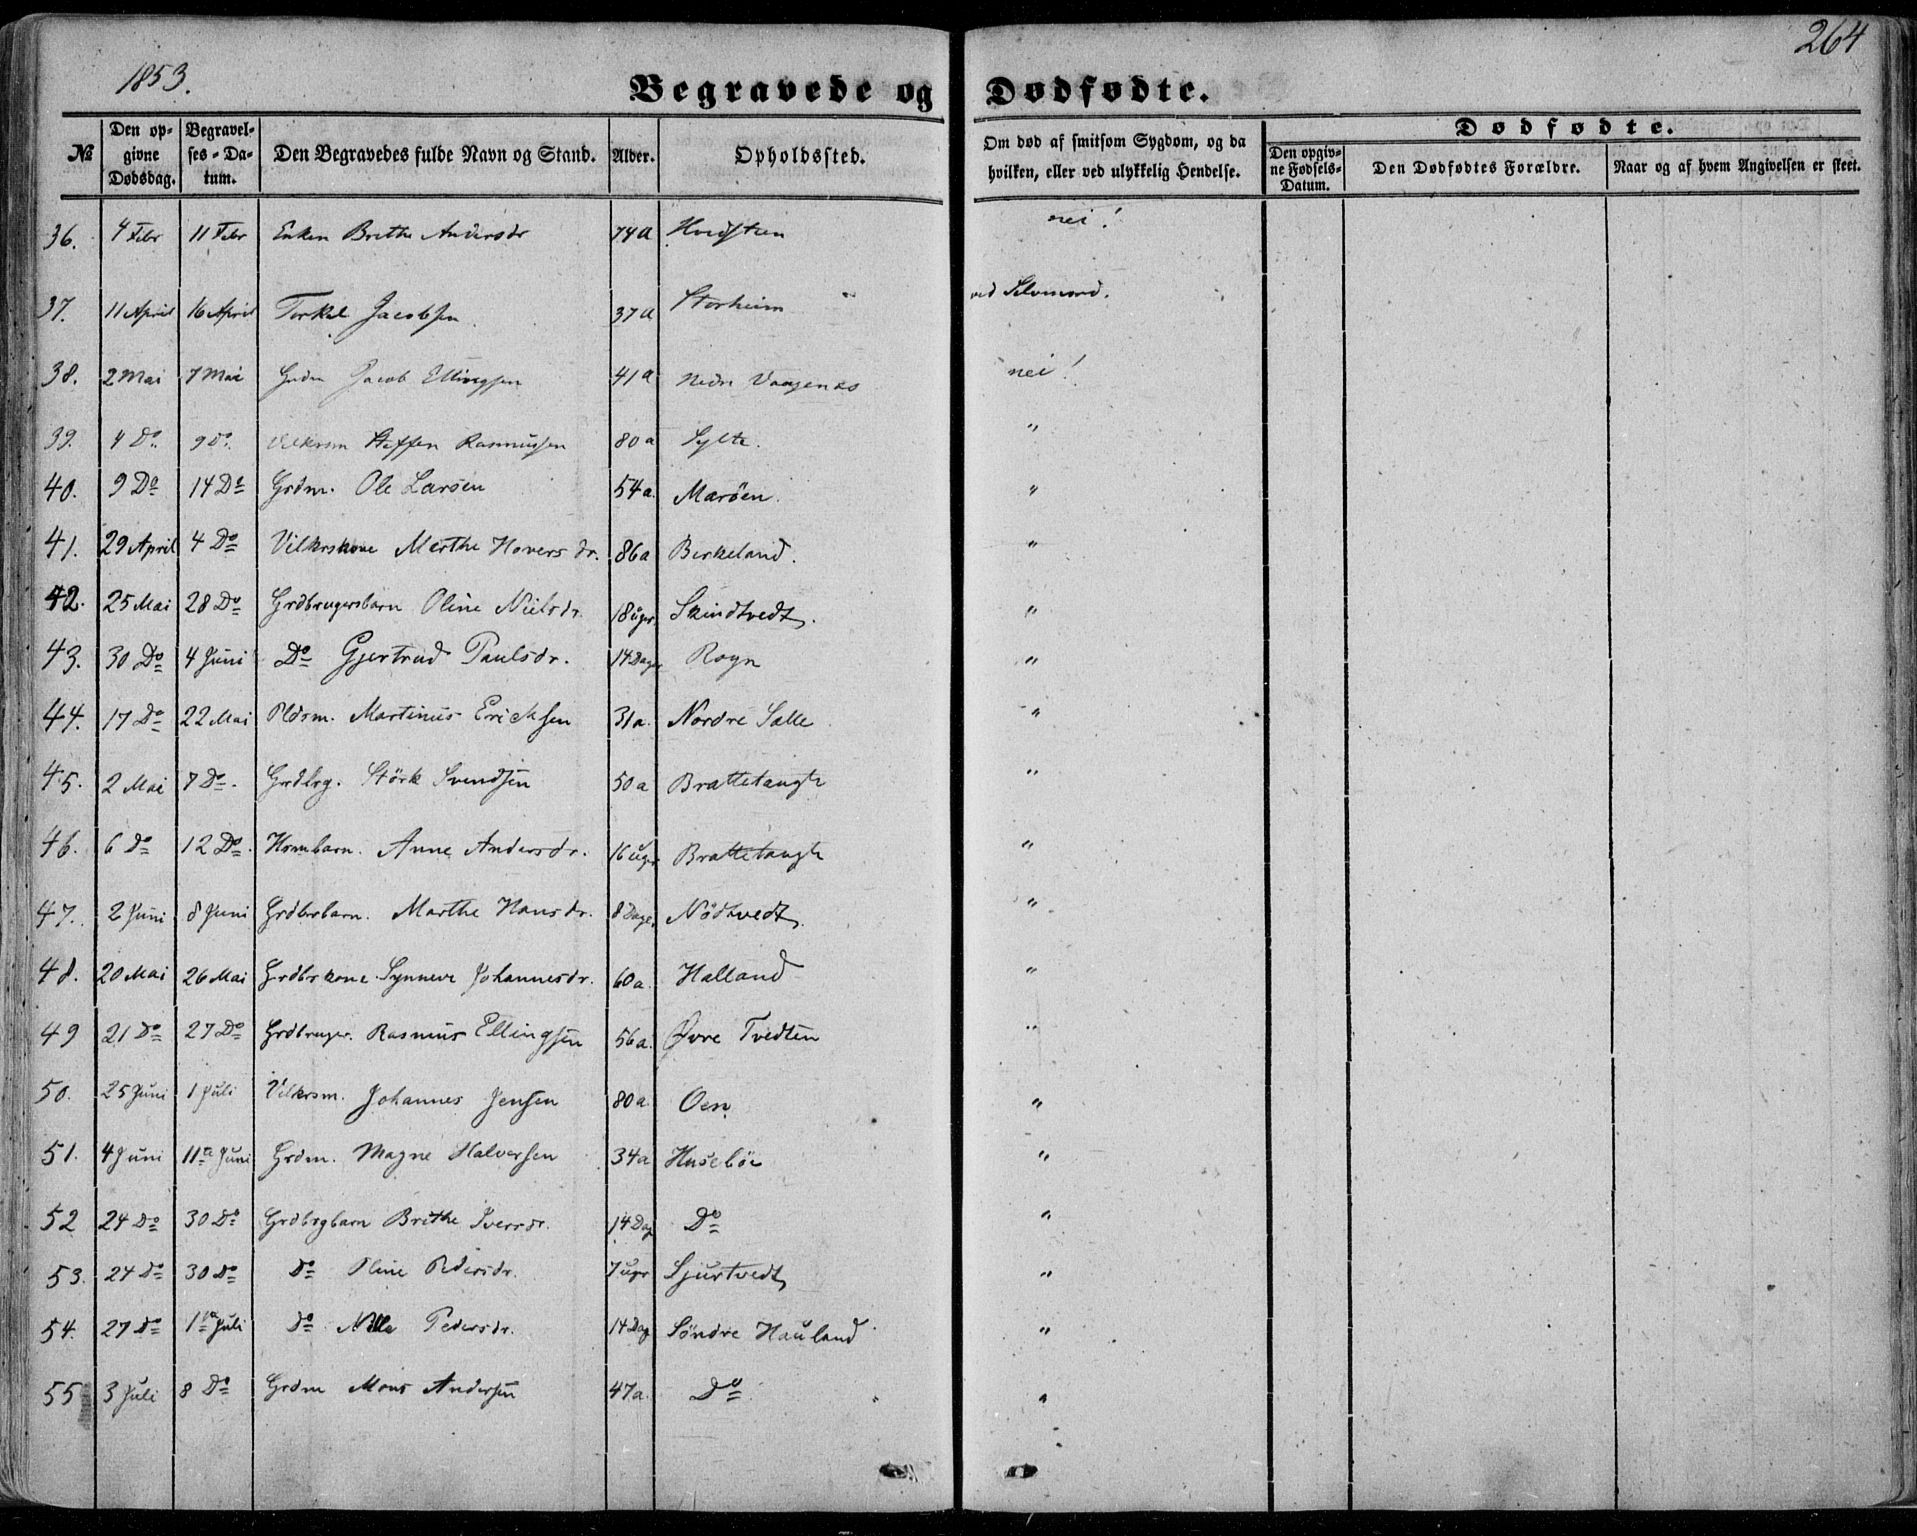 1853.
264
Begravede og Dødfødte.
№ | Den opgivne Dødsdag. | Begravelses-Datum. | Den Begravedes fulde Navn og Stand. | Alder. | Opholdssted. | Om død af smitsom Sygdom, og da hvilken, eller ved ulykkelig Hendelse. | Dødfødte. | Den opgivne Fødsels-Datum. | Den Dødfødtes Forældre. | Naar og af hvem Angivelsen er skeet.
36. | 4 Febr | 11 Febr | Enken Brithe Andersdr | 74a | Hvidsteen | nei!
37. | 11 April | 16 April | Torkel Jacobsen | 37a | Storheim | ved Selvmord.
38. | 2 Mai | 7 Mai | Grdm Jacob Ellingsen | 41a | Nedre Vaagenæs | nei!
39. | 4 Do. | 9 Do. | Vilkrsm Steffen Rasmussen | 80a | Sylte. | "
40. | 9 Do | 14 Do | Grdm. Ole Larsen | 54a. | Marøen. | "
41. | 29 April | 4 Do | Vilkrskone Marthe Haversdr. | 86a | Birkeland. | "
42. | 25 Mai | 28 Do | Grdbrugersbarn Oline Nielsdr. | 18 uger. | Skindtvedt. | "
43. | 30 Do | 4 Juni | Do Gjertrud Paulsdr. | 14 Dage | Rogn | "
44. | 17 Do | 22 Mai | Pldsm. Martinus Ericksen | 31a. | Nordre Salle | "
45. | 2 Mai | 7 Do. | Grdbrg. Störk Svendsen | 50a | Brattetangte | "
46. | 6 do | 12 Do. | Hsmbarn. Anne Andersdr. | 16 uger | Brattetangte | "
47. | 2 Juni | 8 Juni | Grdbrbarn. Marthe Hansdr. | 8 Dage. | Nödtvedt. | "
48. | 20 Mai | 26 Mai | Grdbrkone Synneve Johannesdr. | 60a. | Halland | "
49 | 21 Do | 27 Do | Grdbruger. Rasmus Ellingsen | 56a. | Øvre Tvedten | "
50. | 25 Juni | 1 Juli | Vilkrsm. Johannes Jensen | 80a | Oen. | "
51. | 4 Juni | 11te Juni | Grdm. Magne Halversen | 34a | Husebøe | "
52 | 24 Do | 30 Do | Grdbrgbarn Brithe Iversdr. | 14 Dag | Do | "
53. | 24 Do | 30 Do | do Oline Pedersdr. | 7 uger | Sjurtvedt | "
54. | 27 Do | 1te Juli | do Nille Pedersdr. | 14 Dag | Søndre Hauland | "
55 | 3 Juli | 8 Do | Grdm Mons Andersen | 47a. | Do | "